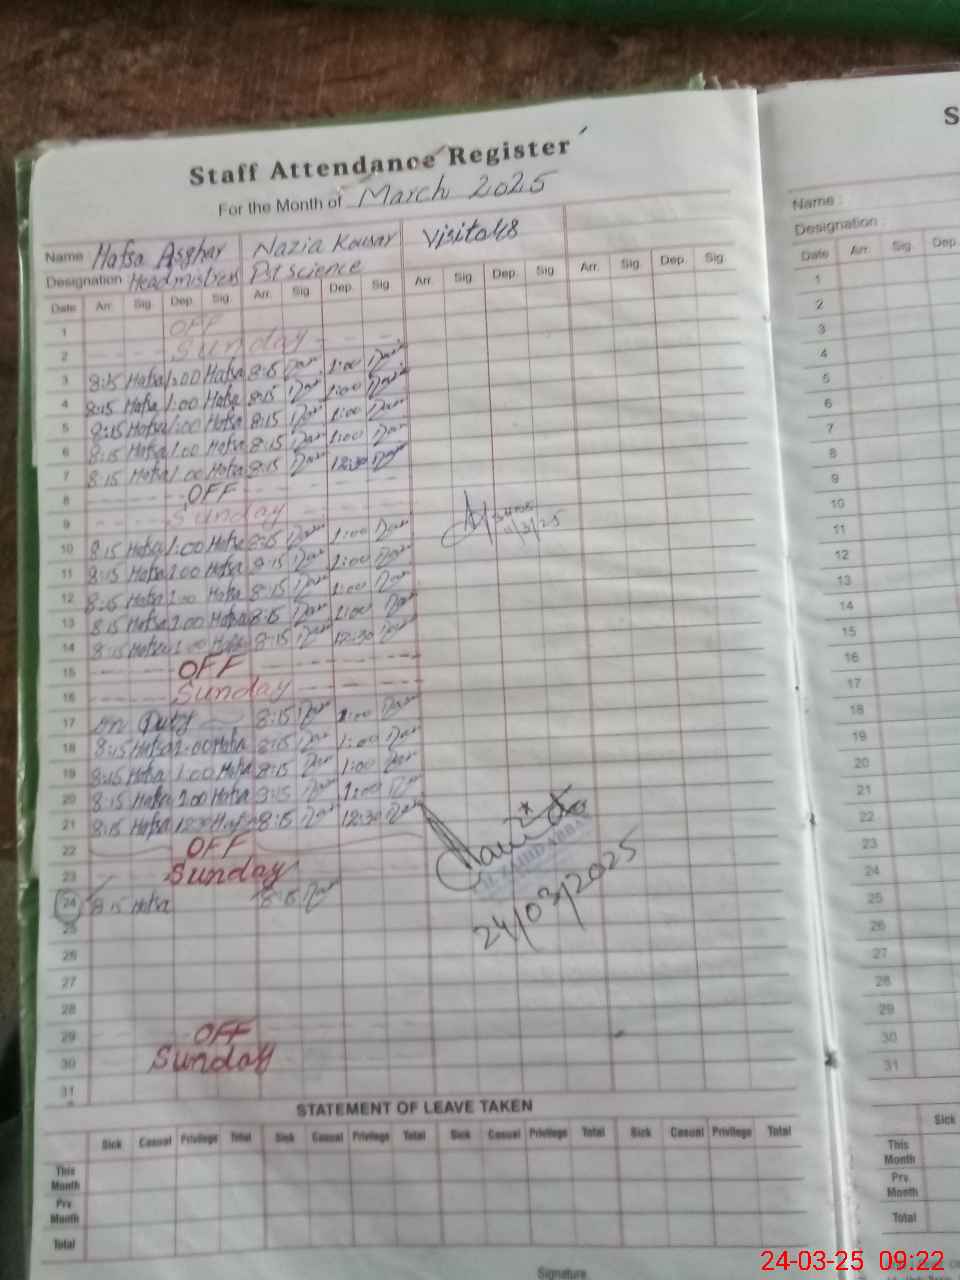 Staff Attendance Register
For the Month of March 2025
Name Hafsa Asghar Nazia Kousar Visitors
Designation Headmistress Pst science
Date Arr. Sig. Dep. Sig. Arr. Sig. Dep. Sig. Arr. Sig. Dep. Sig. Arr. Sig. Dep. Sig.
1 OFF
2 Sunday
3 8:15 Hafsa 1:00 Hafsa 8:15 1:00
4 8:15 Hafsa 1:00 Hafsa 8:15 1:00
5 8:15 Hafsa 1:00 Hafsa 8:15 1:00
6 8:15 Hafsa 1:00 Hafsa 8:15 1:00
7 8:15 Hafsa 1:00 Hafsa 8:15 12:30
8 OFF
9 Sunday
10 8:15 Hafsa 1:00 Hafsa 8:15 1:00
11 8:15 Hafsa 1:00 Hafsa 8:15 1:00
12 8:15 Hafsa 1:00 Hafsa 8:15 1:00
13 8:15 Hafsa 1:00 Hafsa 8:15 1:00
14 8:15 Hafsa 1:00 Hafsa 8:15 12:30
15 OFF
16 Sunday
17 on Duty 8:15 1:00
18 8:15 Hafsa 1:00 Hafsa 8:15 1:00
19 8:15 Hafsa 1:00 Hafsa 8:15 1:00
20 8:15 Hafsa 1:00 Hafsa 8:15 1:00
21 8:15 Hafsa 12:30 Hafsa 8:15 12:30
22 OFF
23 Sunday
24 8:15 Hafsa 8:15
24/03/2025
25
26
27
28
29 OFF
30 Sunday
31
STATEMENT OF LEAVE TAKEN
Sick Casual Privilege Total Sick Casual Privilege Total Sick Casual Privilege Total Sick Casual Privilege Total
This Month
Prv. Month
Total
Signature
S
Name :
Designation :
Date Arr. Sig. Dep.
1
2
3
4
5
6
7
8
9
10
11
12
13
14
15
16
17
18
19
20
21
22
23
24
25
26
27
28
29
30
31
Sick
This Month
Prv. Month
Total
24-03-25 09:22